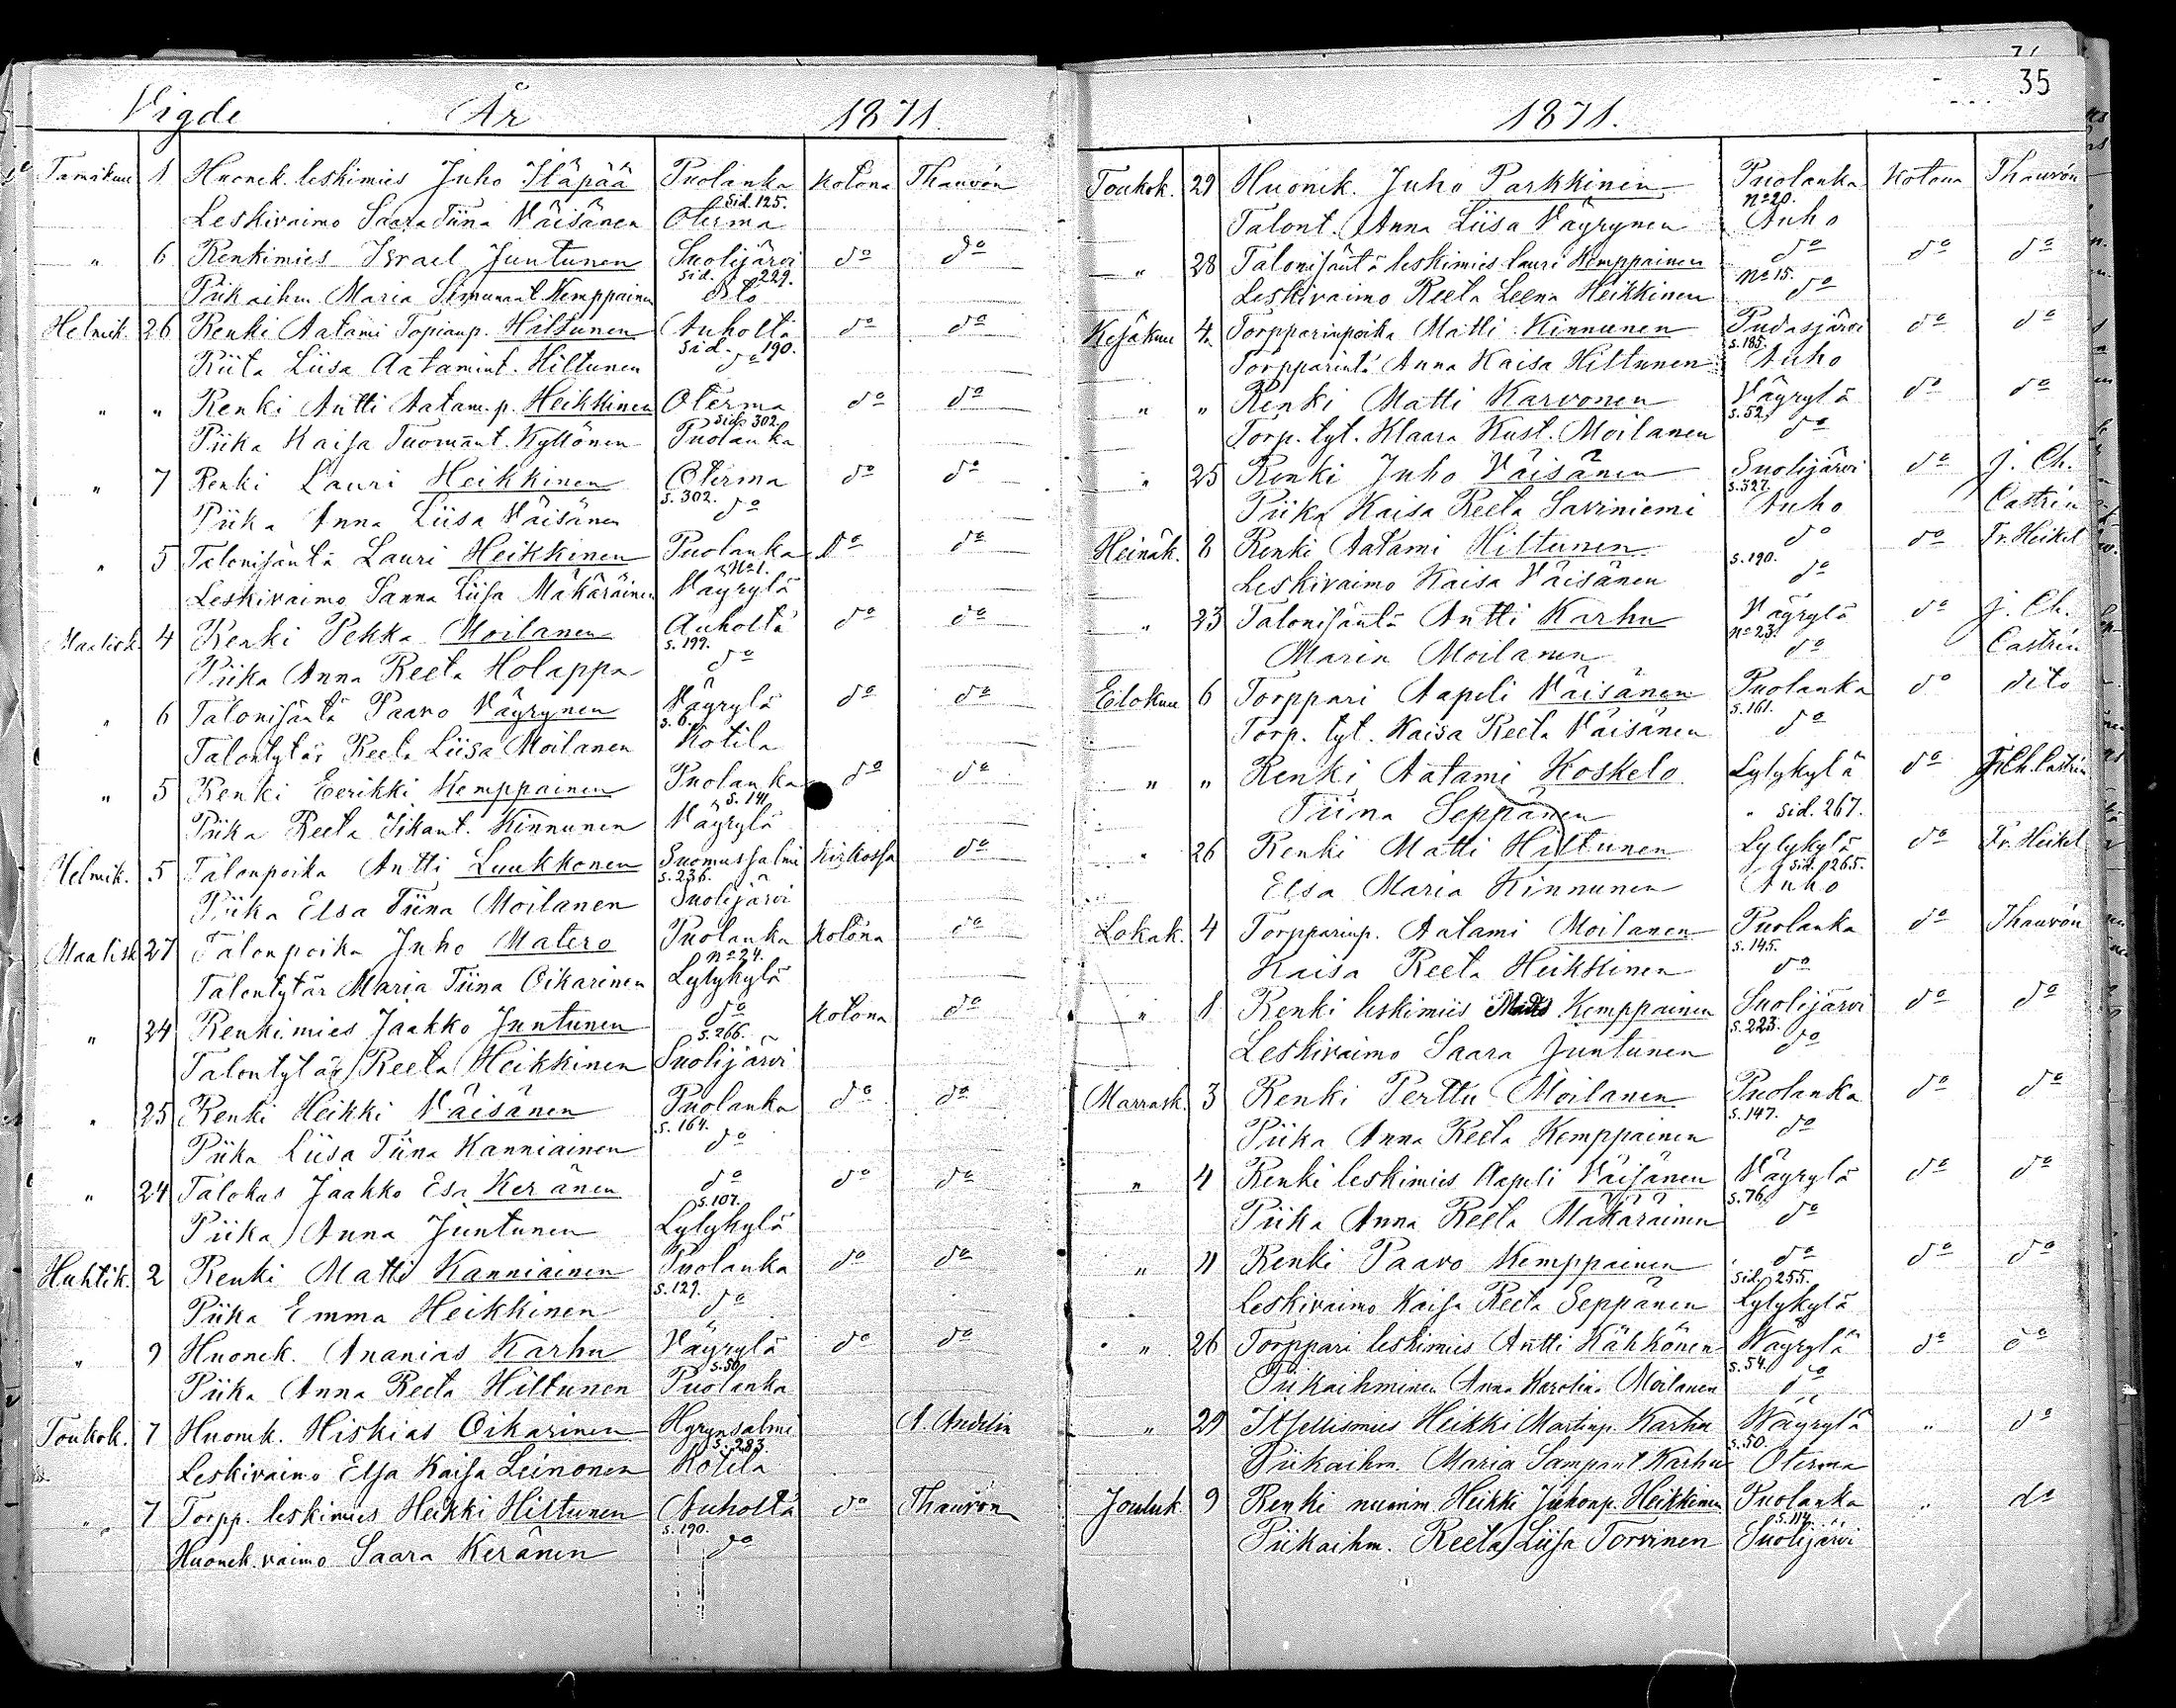 Vigde År 1871
Tamikuu 1 Huonek. leskimies Juho Iläpää Puolanka kotona Thauvón
sid. 125.
Leskivaimo Saara Tiina Väisänen Oterma
" 6 Renkimies Israel Juntunen Suolijärvi do do
sid. 229.
Piikaihm. Maria Simunant. Kemppainen dito
Helmik. 26 Renki Aatami Topianp. Hiltunen Auholta do do
sid. 190.
Riita Liisa Aatamint. Hiltunen do
" " Renki Antti Aatam. p. Heikkinen Oterma do do
sid. 302.
Piika Kaisa Tuomant. Kyllönen Puolanka
" 7 Renki Lauri Heikkinen Oterma do do
s. 302.
Piika Anna Liisa Väisänen do
" 5 Talonisäntä Lauri Heikkinen Puolanka do do
No 1.
Leskivaimo Sanna Liisa Mäkäräinen Väyrylä
Maalisk. 4 Renki Pekka Moilanen Auholta do do
s. 199.
Piika Anna Reeta Holappa do
" 6 Talonisäntä Paavo Väyrynen Väyrylä do do
s. 6.
Talontytär Reeta Liisa Moilanen Kotila
" 5 Renki Eerikki Kemppainen Puolanka do do
s. 141
Piika Reeta Iikant. Kinnunen Väyrylä
Helmik. 5 Talonpoika Antti Luukkonen Suomussalmi kirkossa do
s. 236.
Piika Elsa Tiina Moilanen Suolijärvi
Maalisk 27 Talonpoika Juho Matero Puolanka kotona do
No 24.
Talontytär Maria Tiina Oikarinen Lylykylä
" 24 Renkimies Jaakko Juntunen do kotona do
s. 266.
Talontytär Reeta Heikkinen Suolijärvi
" 25 Renki Heikki Väisänen Puolanka do do
s. 164.
Piika Liisa Tiina Kanniainen do
" 24 Talokas Jaakko Esa Keränen do do do
s. 107.
Piika Anna Juntunen Lylykylä
Huhtik. 2 Renki Matti Kanniainen Puolanka do do
s. 129.
Piika Emma Heikkinen do
" 9 Huonek. Ananias Karhu Väyrylä do do
s. 50.
Piika Anna Reeta Hiltunen Puolanka
Toukok. 7 Huonek. Hiskias Oikarinen Hyrynsalmi A. Andelin
s. 283.
Leskivaimo Elsa Kaisa Leinonen Kotila
" 7 Torpp. leskimies Heikki Hiltunen Auholta do Thauvón
s. 190.
Huonek. vaimo Saara Keränen do
35
1871.
Toukok. 29 Huonek. Juho Parkkinen Puolanka kotona Thauvón
No 20.
Talont. Anna Liisa Väyrynen Auho
" 28 Talonisäntä leskimies Lauri Kemppainen do do do
No 15.
Leskivaimo Reeta Leena Heikkinen do
Kesäkuu 4 Torpparinpoika Matti Kinnunen Pudasjärvi do do
s. 185.
Torpparint. Anna Kaisa Hiltunen Auho
" " Renki Matti Karvonen Väyrylä do do
s. 52.
Torp. tyt. Klaara Kust. Moilanen do
" 25 Renki Juho Väisänen Suolijärvi do J. Ch.
s. 327.
Piika Kaisa Reeta Saviniemi Auho Castrén
Heinäk. 8 Renki Aatami Hiltunen do do Fr. Heikel
s. 190.
Leskivaimo Kaisa Väisänen do
" 23 Talonisäntä Antti Karhu Väyrylä do J. Ch.
No 23.
Maria Moilanen do Castrén
Elokuu 6 Torppari Aapeli Väisänen Puolanka do dito
s. 161.
Torp. tyt. Kaisa Reeta Väisänen do
" " Renki Aatami Koskelo Lylykylä do J. Ch. Castrén
Tiina Seppänen " sid. 267.
" 26 Renki Matti Hiltunen Lylykylä do Fr. Heikel
sid. 265.
Elsa Maria Kinnunen Auho
Lokak. 4 Torpparinp. Aatami Moilanen Puolanka do Thauvón
s. 145.
Kaisa Reeta Heikkinen do
" 1 Renki leskimies Kemppainen Suolijärvi do do
s. 223.
Leskivaimo Saara Juntunen do
Marrask. 3 Renki Perttu Moilanen Puolanka do do
s. 147.
Piika Anna Reeta Kemppainen do
" 4 Renki leskimies Aapeli Väisänen Väyrylä do do
s. 76.
Piika Anna Reeta Mäkäräinen do
" 11 Renki Paavo Kemppainen do do do
sid. 255.
Leskivaimo Kaisa Reeta Seppänen Lylykylä
" 26 Torppari leskimies Antti Kähkönen Wäyrylä do do
s. 54.
Piikaihminen Anna Karolina Moilanen do
" 29 Itsellismies Heikki Martinp. Karhu Wäyrylä " do
s. 50.
Piikaihm. Maria Sampant. Karhu Oterma
Jouluk. 9 Renki nuorim. Heikki Juhonp. Heikkinen Puolanka " do
s. 114.
Piikaihm. Reeta Liisa Torvinen Suolijärvi